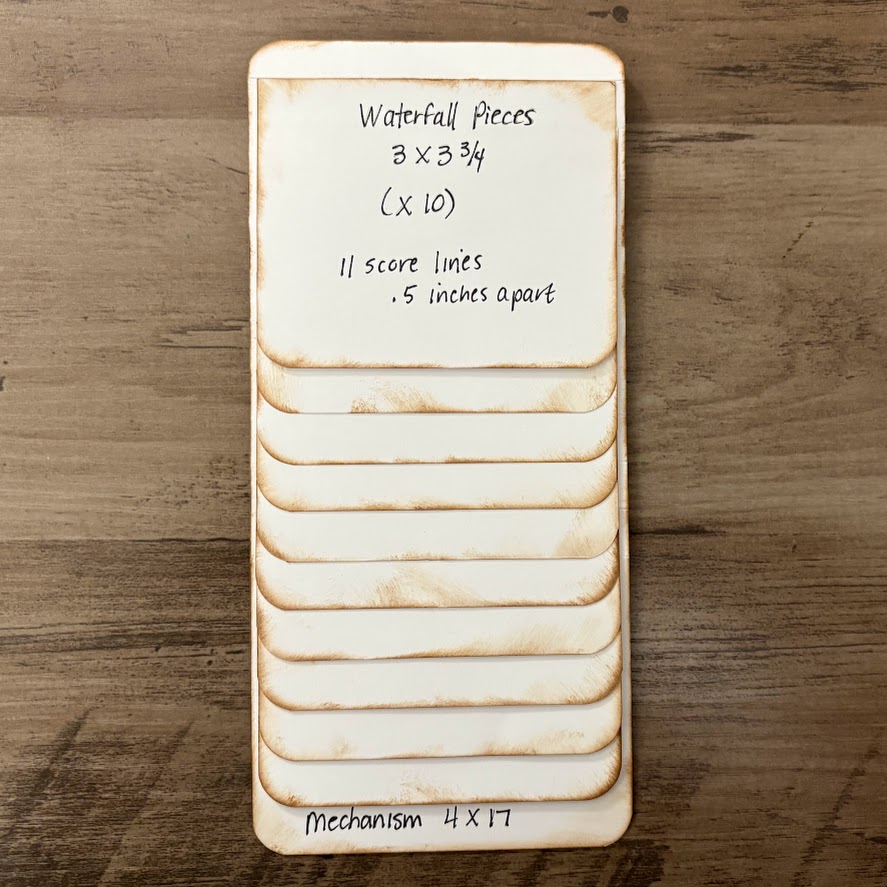 Waterfall Pieces
3 X 3 3/4
(X 10)
11 score lines
.5 inches apart
Mechanism 4 X 17